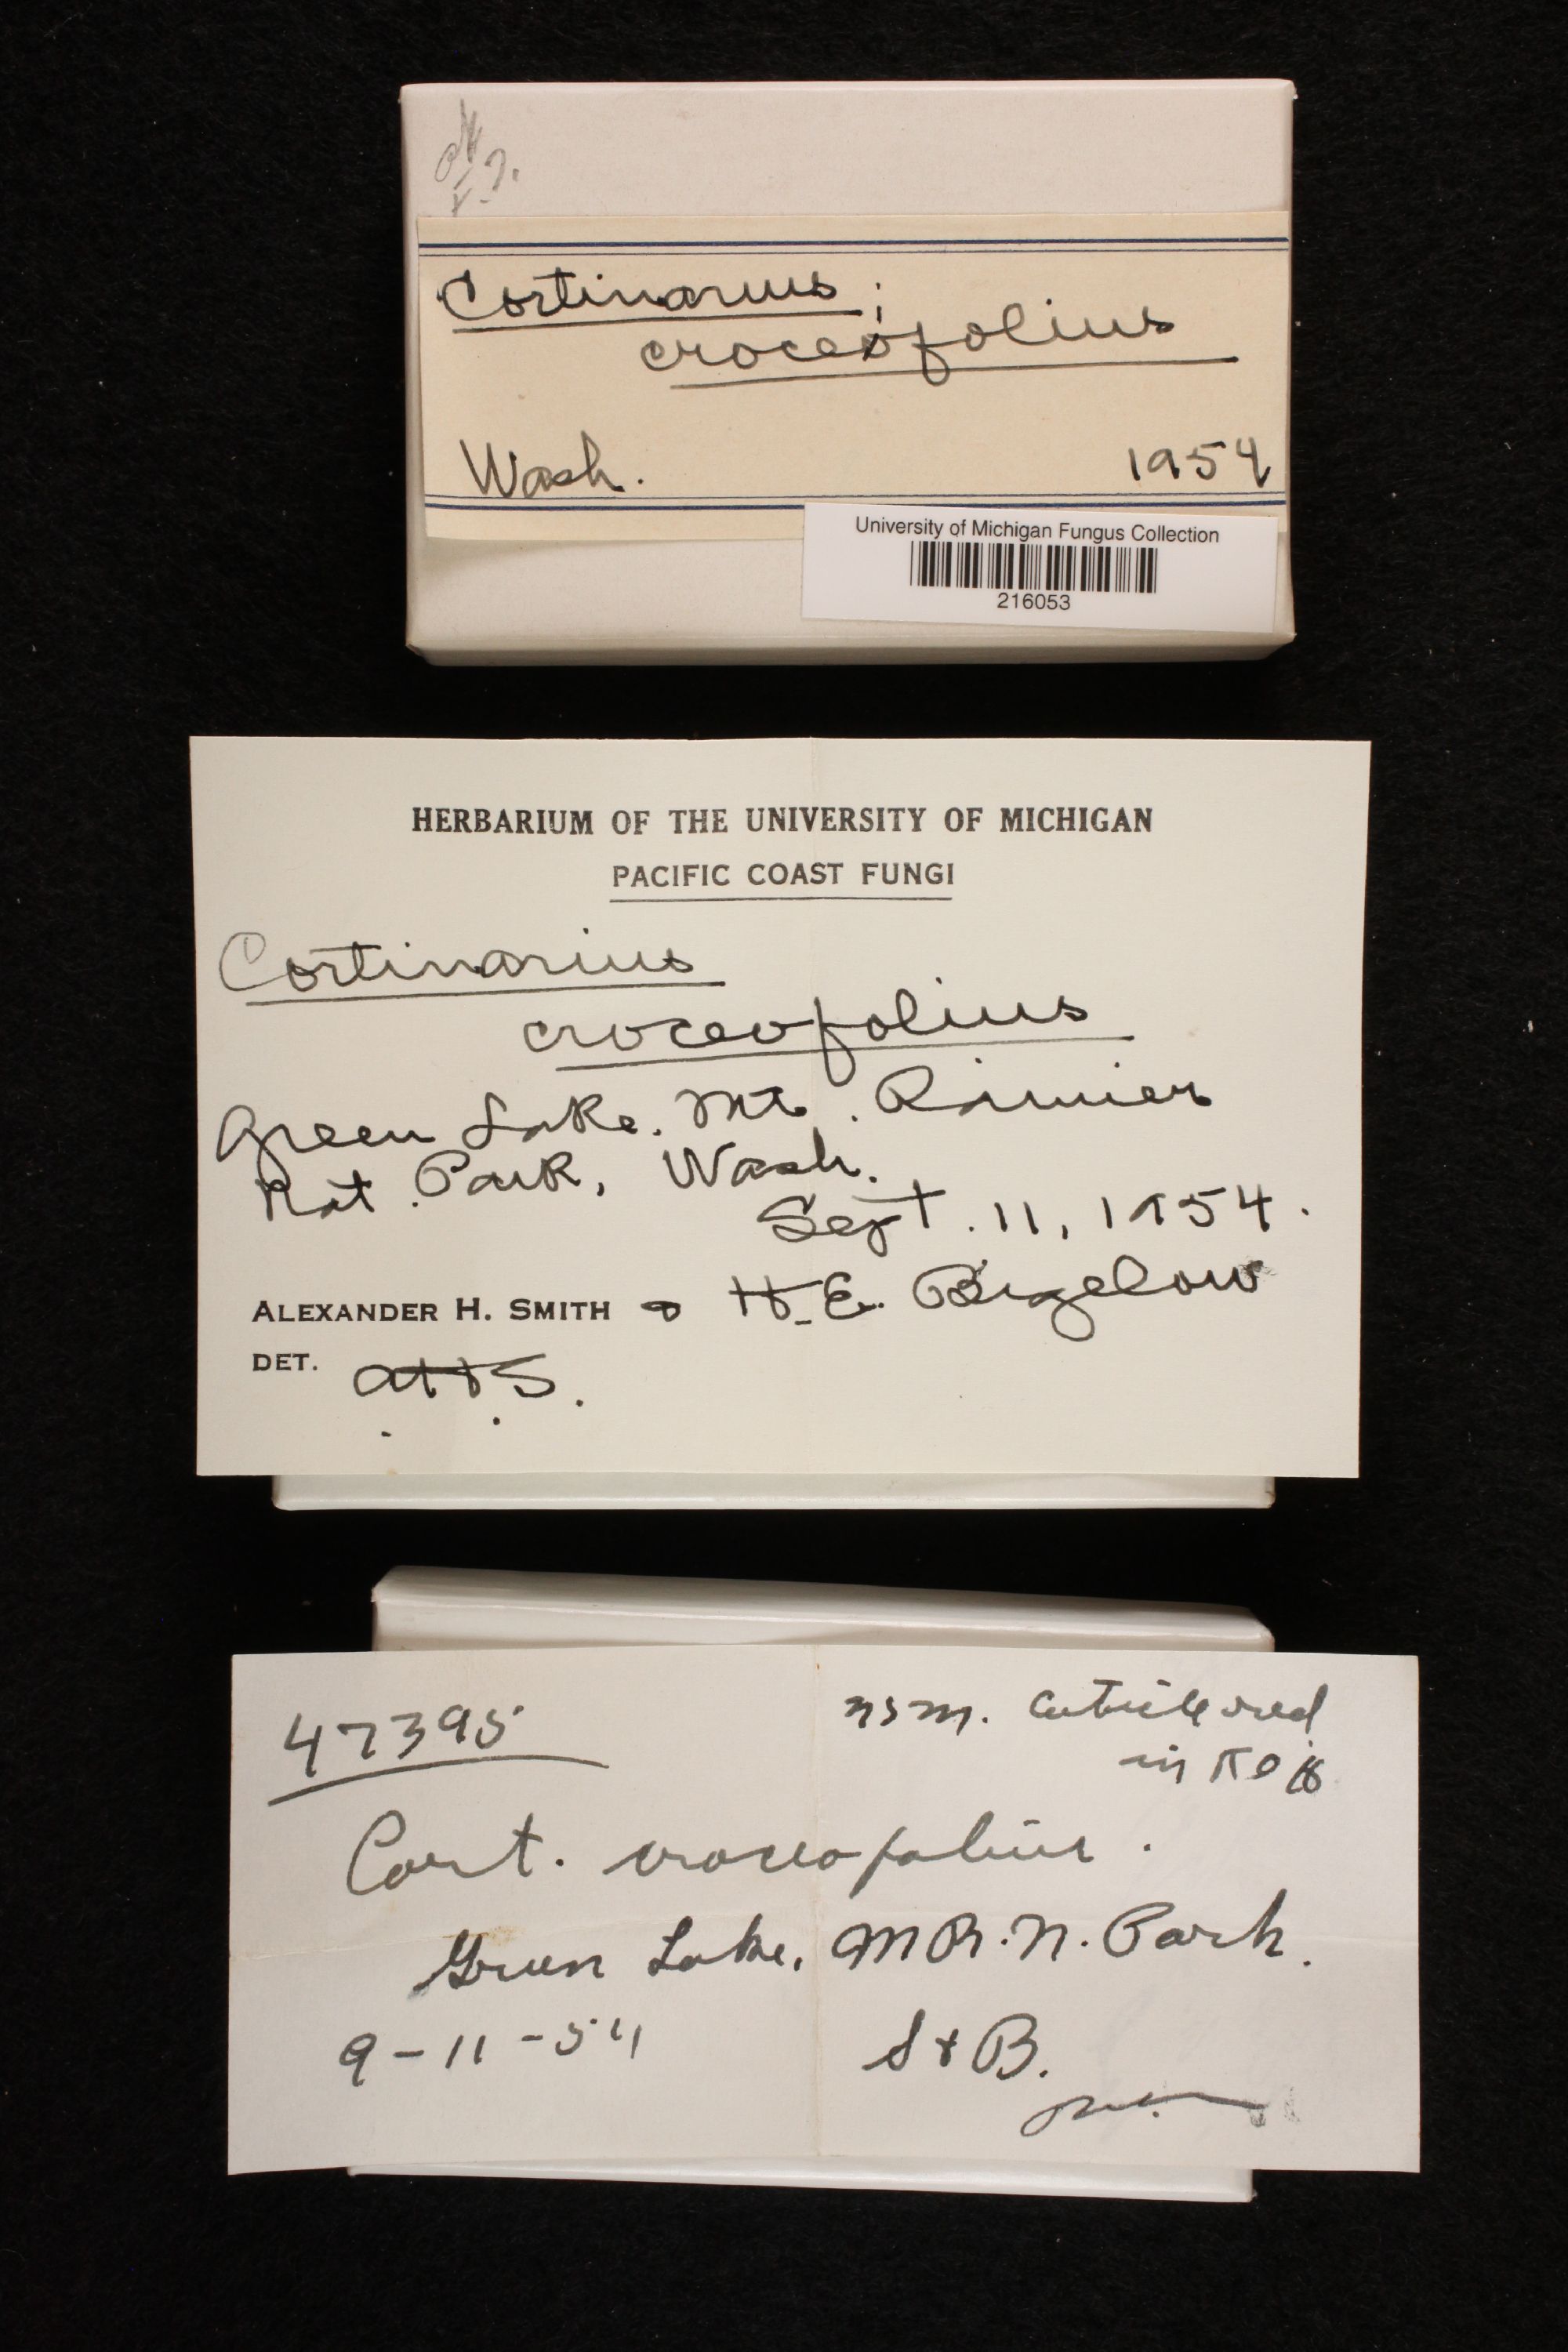 ok
Cortinarius
croceofolius
Wash. 1954
University of Michigan Fungus Collection
216053
HERBARIUM OF THE UNIVERSITY OF MICHIGAN
PACIFIC COAST FUNGI
Cortinarius
croceofolius
Green Lake, Mt. Rainier
Nat. Park, Wash.
Sept. 11, 1954.
ALEXANDER H. SMITH & H.E. Bigelow
DET. AHS.
47395
cuticle red
in KOH
Cort. croceofolius.
Green Lake, M R. N. Park.
9-11-54 S + B.